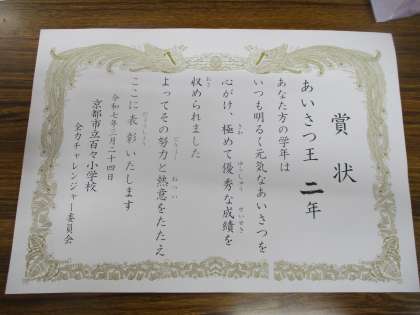 賞状
あいさつ王 二年
あなた方の学年は
いつも明るく元気なあいさつを
心がけ、極めて優秀な成績を
収められました
よってその努力と熱意をたたえ
ここに表彰いたします
令和七年二月二十四日
京都市立百々小学校
全力チャレンジャー委員会